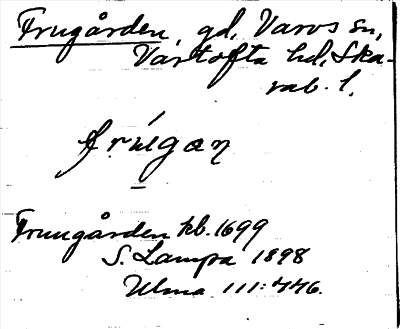 Frugården, gd, Varvs sn,
Vartofta hd, Ska-
rab. l.
frúgan
Fruugården kb. 1699
S. Lampa 1898
Ulma 111:446.